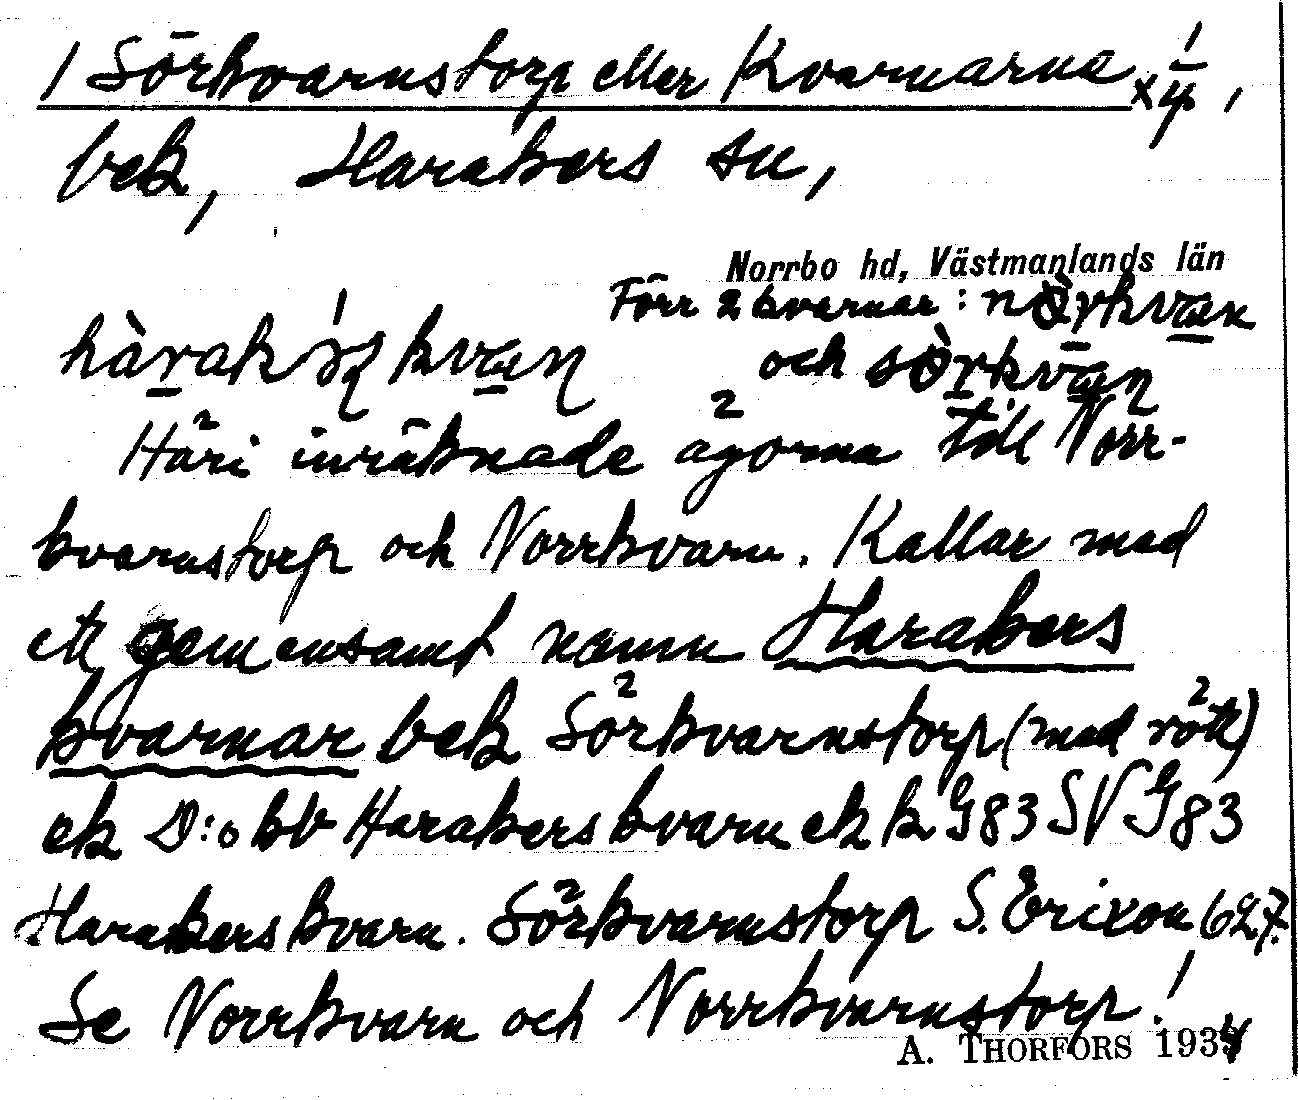 1 Sörkvarnstorp eller Kvarnarna
bek, Harakers sn,
Norrbo hd, Västmanlands län
Förr 2 kvarnar: nòrkvan
hàrak kvan och sòrkvan
Häri inräknade ägorna till Norr-
kvarnstorp och Norrkvarn. Kallar med
ett gemensamt namn Harakers
kvarnar bek Sörkvarnstorp (med rött)
ek D:o bb Harakers kvarn ek k G83 SV G83
Harakers kvarn. Sörkvarnstorp S. Erixon 627.
Se Norrkvarn och Norrkvarnstorp!
A. THORFORS 1934